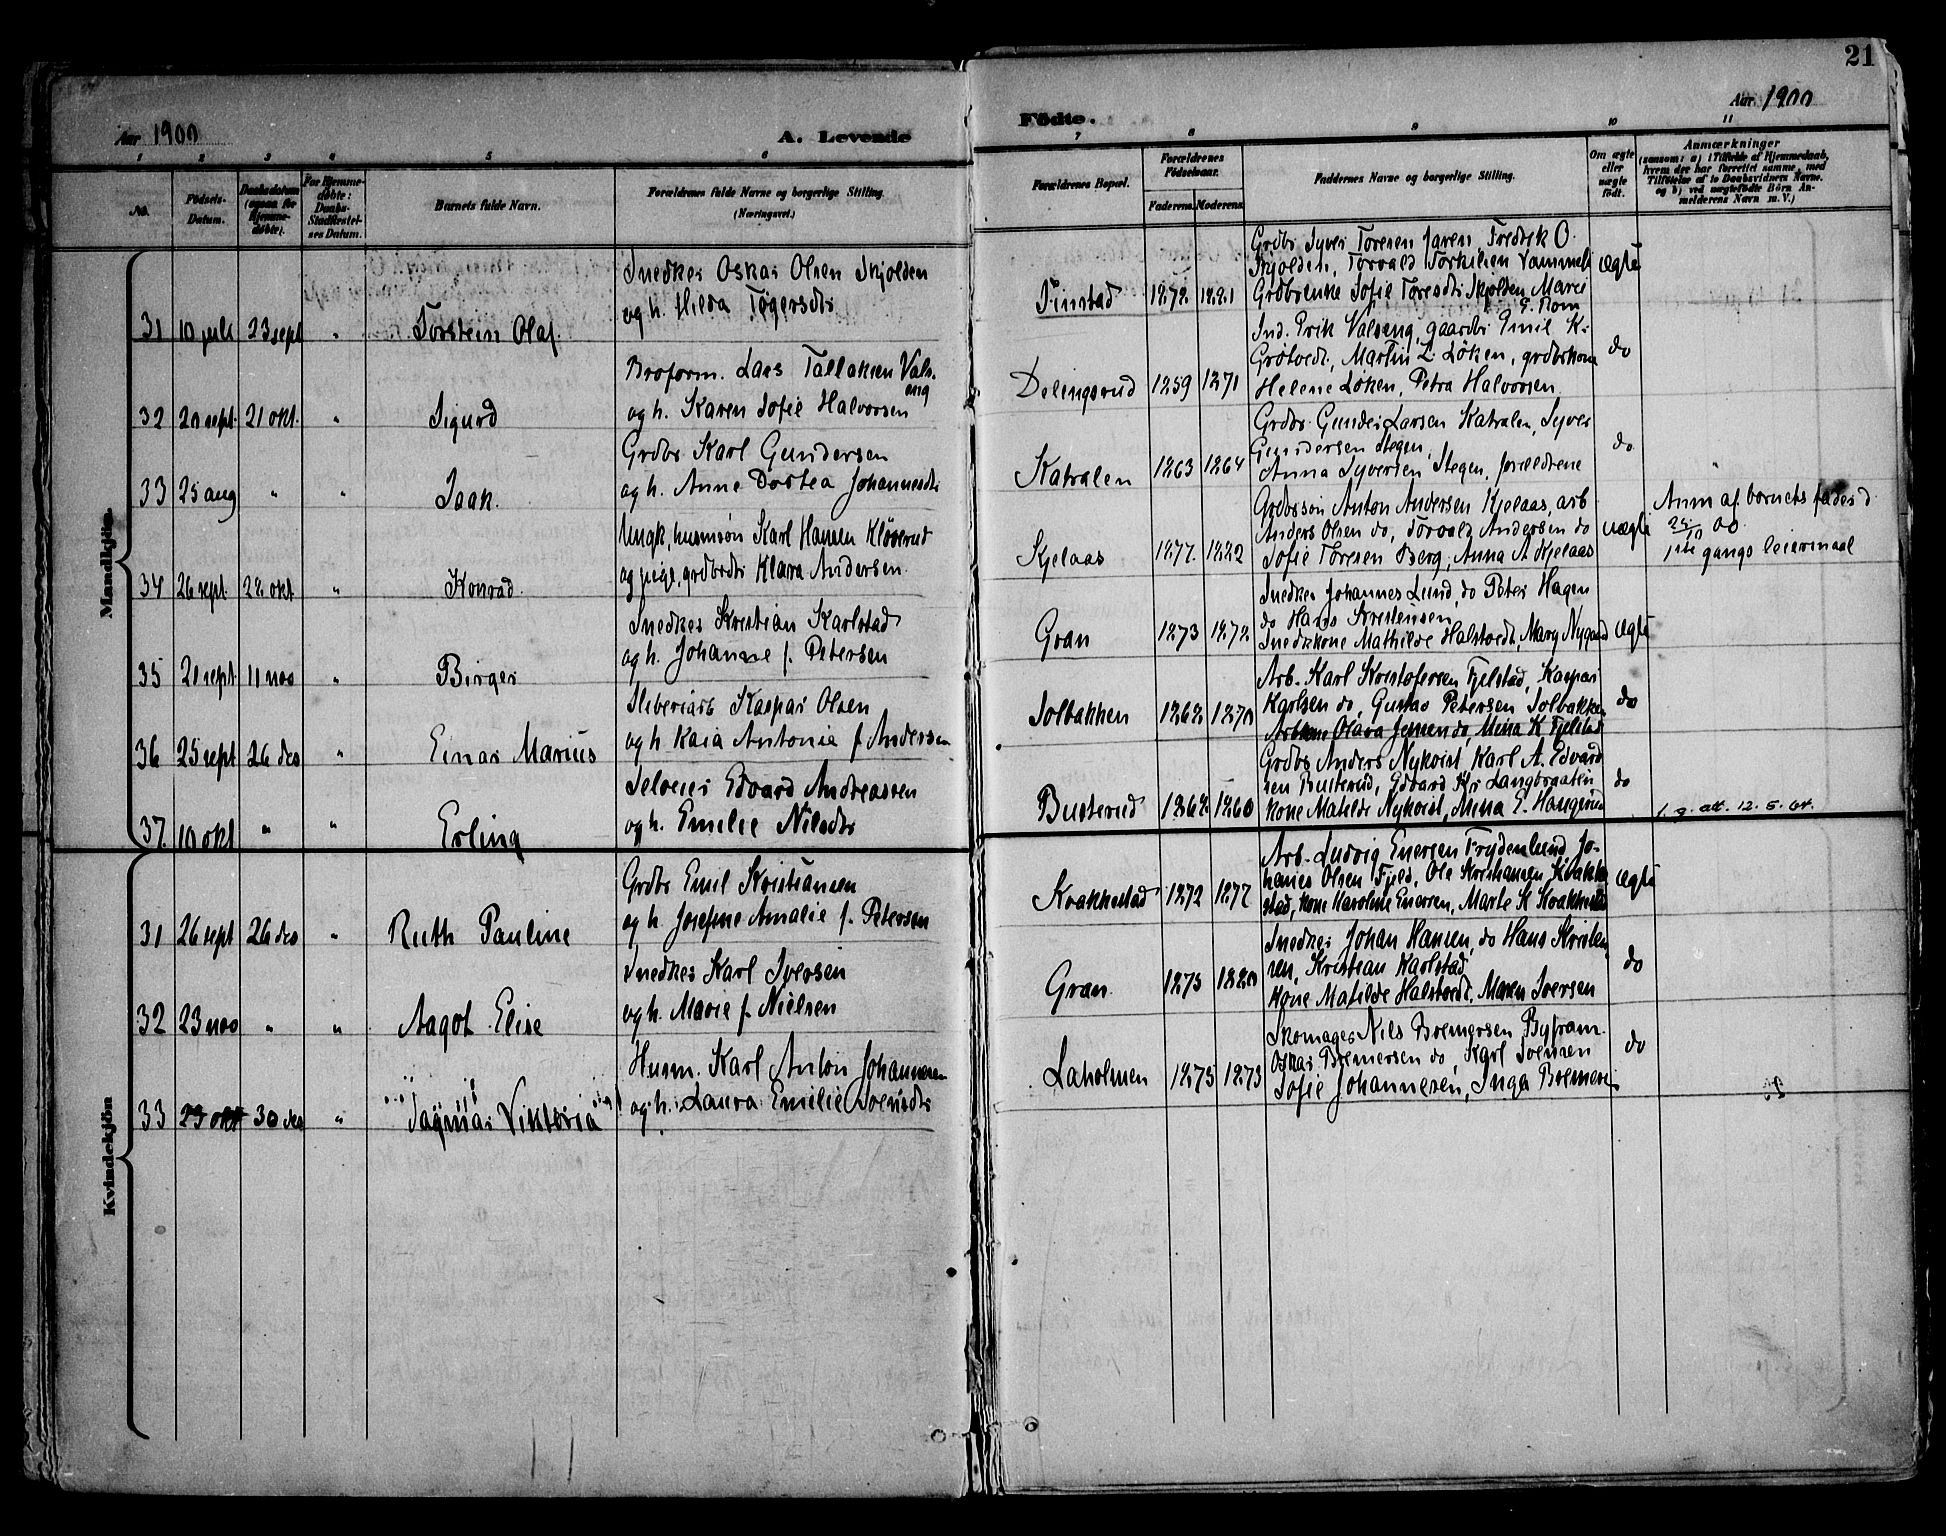 21
Aar 1900
A. Levende
Fødte.
Aar 1900
1 2 3 4 5 6 7 8 9 10 11
No.
Fødsels-Datum.
Daabsdatum (ogsaa for Hjemmedøbte).
For Hjemmedøbte: Daabs-Stadfæstelses Datum.
Barnets fulde Navn.
Forældrenes fulde Navne og borgerlige Stilling. (Næringsvei.)
Forældrenes Bopæl.
Forældrenes Fødselsaar.
Faderens. Moderens.
Faddernes Navne og borgerlige Stilling.
Om ægte eller uægte født.
Anmærkninger
(saasom: a) i Tilfælde af Hjemmedaab, hvem der har forrettet samme, med Tilføielse af to Daabsvidners Navne, og b) ved uægtefødte Børn Anmelderens Navn m. V.)
Mandkjøn.
31 10 juli 23 sept " Torstein Olaf.
Snedker Oskar Olsen Skjolden
og h. Hilda Tøgersdtr
Finstad 1872 1881
Grdbr Syver Toresen Jaren, Fredrik O.
Skjolden, Torvald Torkilsen Vammeli
Grdbrenke Sofie Toresdtr Skjolden, Marei
G. Rom
ægte
32 20 sept. 21 okt. " Sigurd
Broform. Lars Tallaksen Valseng
og h. Karen Sofie Halvorsen
Delingsrud 1859 1871
Ind. Erik Valseng, gaardbr Emil K.
Grøtvedt, Martin L. Løken, grdbrkone
Helene Løken, Petra Halvorsen
do
33 25 aug " " Isak.
Grdbr Karl Gundersen
og h. Anne Dortea Johannesdtr
Katralen 1863 1864
Grdbr Gunder Larsen Katralen, Syver
Gundersen Stegen,
Anna Syversen Stegen, forældrene
do
34 26 sept. 28 okt. " Konrad.
Ungk, husmsøn Karl Hansen Kløverud
og pige, grdbrdtr Klara Andersen.
Kjelaas 1877. 1882
Grdbrsøn Anton Andersen Kjelaas, arb
Anders Olsen do, Torvald Andersen do
Sofie Toresen Berg, Anna A Kjelaas
uægte
Anm af barnets fader d.
25/10 00.
1ste gangs leiermaal
35 21 sept 11 nov " Birger
Snedker Kristian Karlstad
og h. Johanne f. Petersen
Gran 1873 1872
Snedker Johannes Lund, do Peter Hagen
do Hans Kristensen
Snedkkone Mathilde Halstvedt, Mary Nygaard
ægte
36 25 sept 26 des " Einar Marius
Sliberiarb Kaspar Olsen
og h Kaia Antonie f. Andersen
Solbakken 1868 1870
Arb. Karl Kristofersen Fjelstad, Kaspar
Karlsen do, Gustav Petersen Solbakken
Arbkone Olava Jensen do, Mina K Fjelstad
do
37. 10 okt " " Erling
Selveier Edvard Andreassen
og h. Emilie Nilsdtr
Busterud 1868 1860
Grdbr Anders Nykvist, Karl A. Edvard
sen Busterud, Edvard Kr. Langbraaten
kone Matilde Nykvist, Mina E. Haugerud
do
1. g. att. 12.5.64.
Kvindekjön
31 26 sept 26 des " Ruth Pauline
Grdbr Emil Kristiansen
og h. Josefine Amalie f. Petersen
Kvakkestad 1872 1877
Arb. Ludvig Enersen Frydenlund, Jo-
hanes Olsen Fjeld, Ole Kristiansen Kvakke
stad, kone Karoline Enersen, Marte K Kvakkestad
ægte
32 23 nov " " Aagot Elise
Snedker Karl Iversen
og h. Marie f. Nielsen
Gran. 1875 1880
Snedker Johan Hansen, do Hans Kristen
sen, Kristian Karlstad,
kone Matilde Halstvedt, Maren Iversen
do
33 29 okt 30 des " Dagmar Viktoria
Husm. Karl Anton Johannesen
og h. Laura Emilie Svensdtr
Laholmen 1875 1873
Skomager Nils Bremersen Byfram.
Oskar Bremersen do Karl Svensen
Sofie Johannesen, Inga Bremers
do